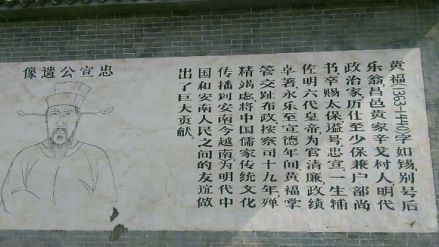 忠宣公遗像
黄福(1363—1440)字如锡别号后
乐翁昌邑黄家辛戈村人明代
政治家历仕至少保兼户部尚
书辛赐太保谥号忠宣一生辅
佐明六代皇帝为官清廉政绩
卓著永乐至宣德年间黄福掌
管交趾布政按察司十九年殚
精竭虑将中国儒家传统文化
传播到安南今越南为明代中
国和安南人民之间的友谊做
出了巨大贡献。